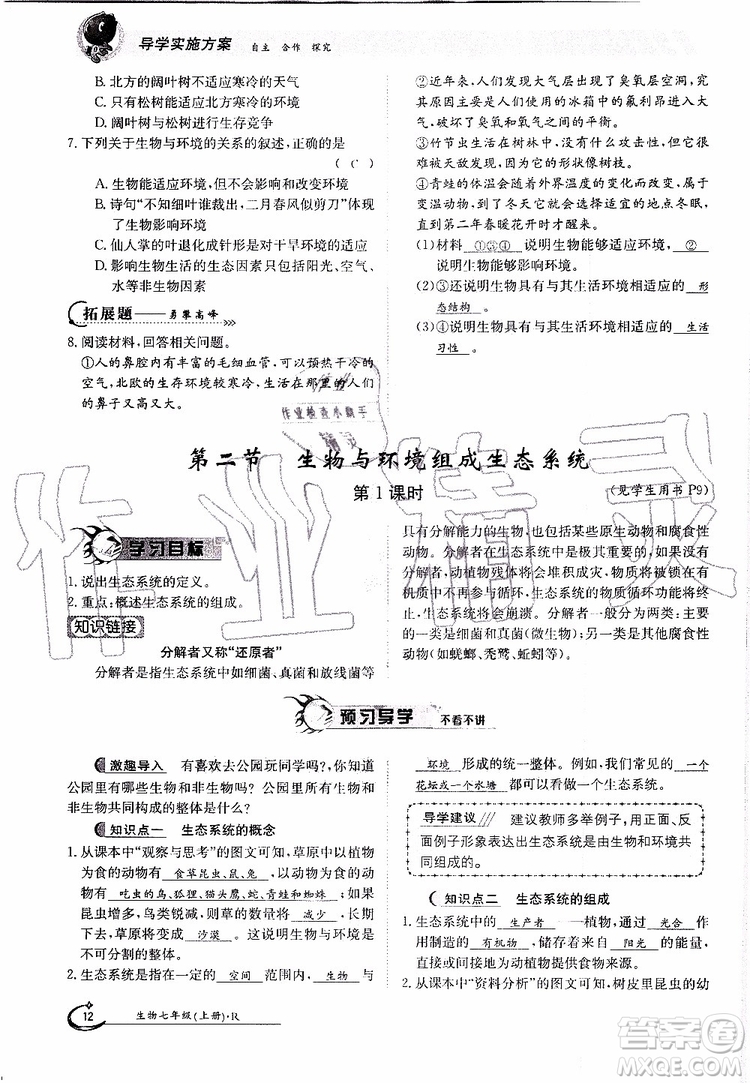 导学实施方案 自主 合作 探究
B. 北方的阔叶树不适应寒冷的天气
C. 只有松树能适应北方寒冷的环境
D. 阔叶树与松树进行生存竞争
7. 下列关于生物与环境的关系的叙述,正确的是
( C )
A. 生物能适应环境,但不会影响和改变环境
B. 诗句“不知细叶谁裁出,二月春风似剪刀”体现
了生物影响环境
C. 仙人掌的叶退化成针形是对干旱环境的适应
D. 影响生物生活的生态因素只包括阳光、空气、
水等非生物因素
拓展题——勇攀高峰
8. 阅读材料,回答相关问题。
①人的鼻腔内有丰富的毛细血管,可以温暖冰冷的
空气,北欧的生存环境较寒冷,生活在那里的人们
的鼻子又高又大。
②近年来,人们发现大气层出现了臭氧层空洞,究
其原因主要是由于人们使用的冰箱的氟利昂进入大
气,破坏了臭氧和氧气之间的平衡。
③竹节虫生活在树林中,没有什么攻击性,但它很
难被天敌发现,因为它的形状像树枝。
④青蛙的体温会随着外界温度的变化而变化,属于
变温动物,到了冬天它会选择温度适宜的地方冬眠,
到第二年春暖花开时才醒来。
(1)材料 ①③④ 说明生物能够适应环境, ②
说明生物能够影响环境。
(2)③还说明生物具有与其环境相适应的 形
态结构 。
(3)④说明生物具有与其环境相适应的 生活
习性 。
第二节 生物与环境组成生态系统
第 1 课时
(见学生用书 P9)
学习目标
1. 说出生态系统的定义。
2. 重点:概述生态系统的组成。
知识链接
分解者又称“还原者”
分解者是指生态系统中如细菌、真菌和放线菌等
具有分解能力的生物,也包括某些原生动物和腐食性
动物。分解者在生态系统中的作用是极为重要的,如
果没有分解者,动植物残体将会堆积成灾,物质将被锁在有
机质中不再参与循环,生态系统的物质循环功能将终
止,生态系统将会崩溃。分解者一般可分为两类:主要
的一类是细菌和真菌(微生物);另一类是腐食性动物
(如蜣螂、秃鹫、蚯蚓等)。
预习导学 不看不讲
激趣导入 有喜欢去公园玩同学吗?你知道
公园里有哪些生物和非生物吗?公园里的生物和
非生物共同构成的整体是什么?
知识点一 生态系统的概念
1. 从课本中“观察与思考”的图文可知,草原中以草
为食的动物有 食草昆虫、鼠、兔 ,以动物为食的动
物有 吃虫的鸟、狐狸、猫头鹰、蛇、青蛙和蜘蛛 ;如果
昆虫、鸟类锐减,则草原的面积将 减少 ,长期
下去,草原将变成 沙漠 。这说明生物与环境是
不可分割的整体。
2. 生态系统是指在一定的 空间 范围内, 生物 与
环境 形成的统一整体。例如 一个
花坛或一个水塘 都可以看做一个生态系统。
导学建议 建议教师多举例子,用正、反
面例子形象表达出生态系统是由生物和环境共
同组成的。
知识点二 生态系统的组成
1. 生态系统中的 生产者 ——植物,可以通过 光合
作用制造的 有机物 ,储存着来自 阳光 的能量,
直接或间接地为动植物提供营养物质。
2. 从课本中“资料分析”的图文可知,树皮里昆虫的幼
12 生物七年级(上册)·R
作业精灵
作业检查小助手
答案圈
MXQE.COM